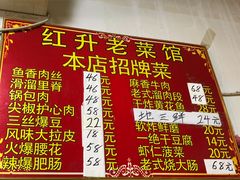 红升老菜馆
本店招牌菜
鱼香肉丝 46元
滑溜里脊 48元
锅包肉 48元
尖椒护心肉 58元
三丝爆豆 22元
风味大拉皮 18元
火爆腰花 58元
辣爆肥肠 58元
麻香牛肉 68元
老式溜肉段 48元
干炸黄花鱼 28元
地三鲜 24元
软炸鲜蘑 28元
一绝干豆腐 14元
虾仁溜菜 20元
老式烧大肠 68元